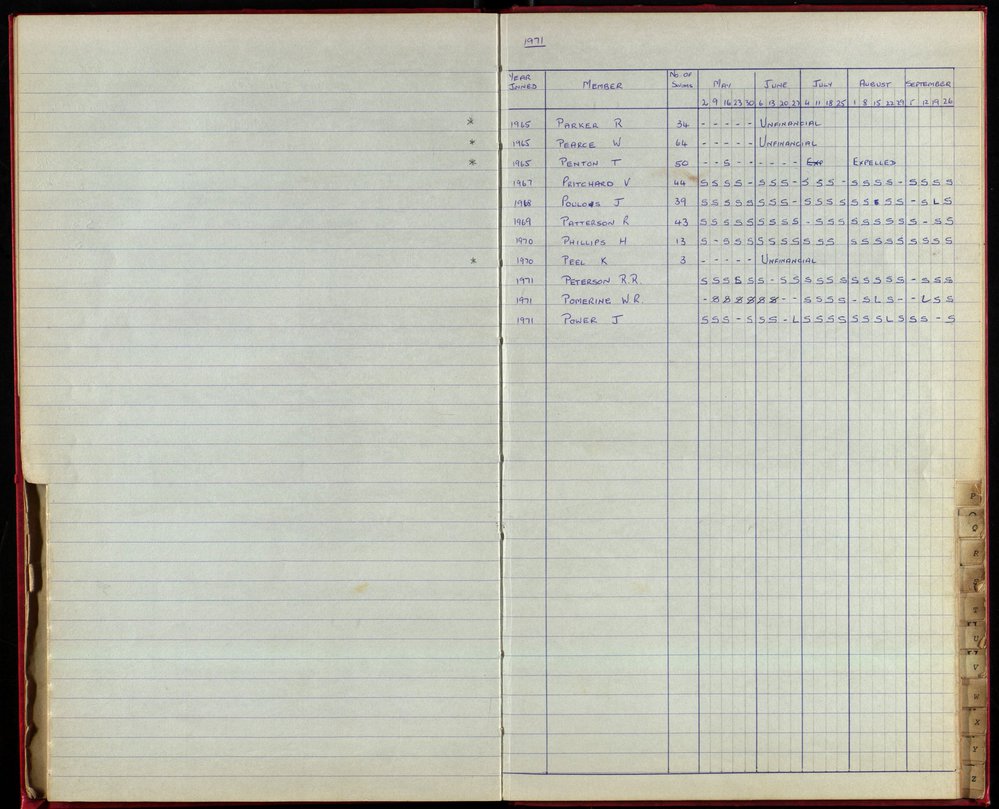 1971
YEAR JOINED MEMBER No. OF SWIMS MAY JUNE JULY AUGUST SEPTEMBER
2 9 16 23 30 6 13 20 27 4 11 18 25 1 8 15 22 29 5 12 19 26
* 1965 PARKER R 34 - - - - - UNFINANCIAL
* 1965 PEARCE W 64 - - - - - UNFINANCIAL
* 1965 PENTON T 50 - - S - - - - - - EXP EXPELLED
1967 PRITCHARD V 44 S S S S - S S S - S S S - S S S S - S S S S
1968 POULOS J 39 S S S S S S S S - S S S S S S S S S - S L S
1969 PATTERSON R 43 S S S S S S S S S - S S S S S S S S S - S S
1970 PHILLIPS H 13 S - S S S S S S S S S S S S S S S S S S S
* 1970 PEEL K 3 - - - - - UNFINANCIAL
1971 PETERSON R.R. S S S S S S - S S S S S S S S S S S - S S S
1971 POMERINE W.R. - 8 8 8 8 8 8 - - S S S S - S L S - - L S S
1971 POWER J S S S - S S S - L S S S S S S S L S S S - S
P
Q
R
S
T
U
V
W
X
Y
Z